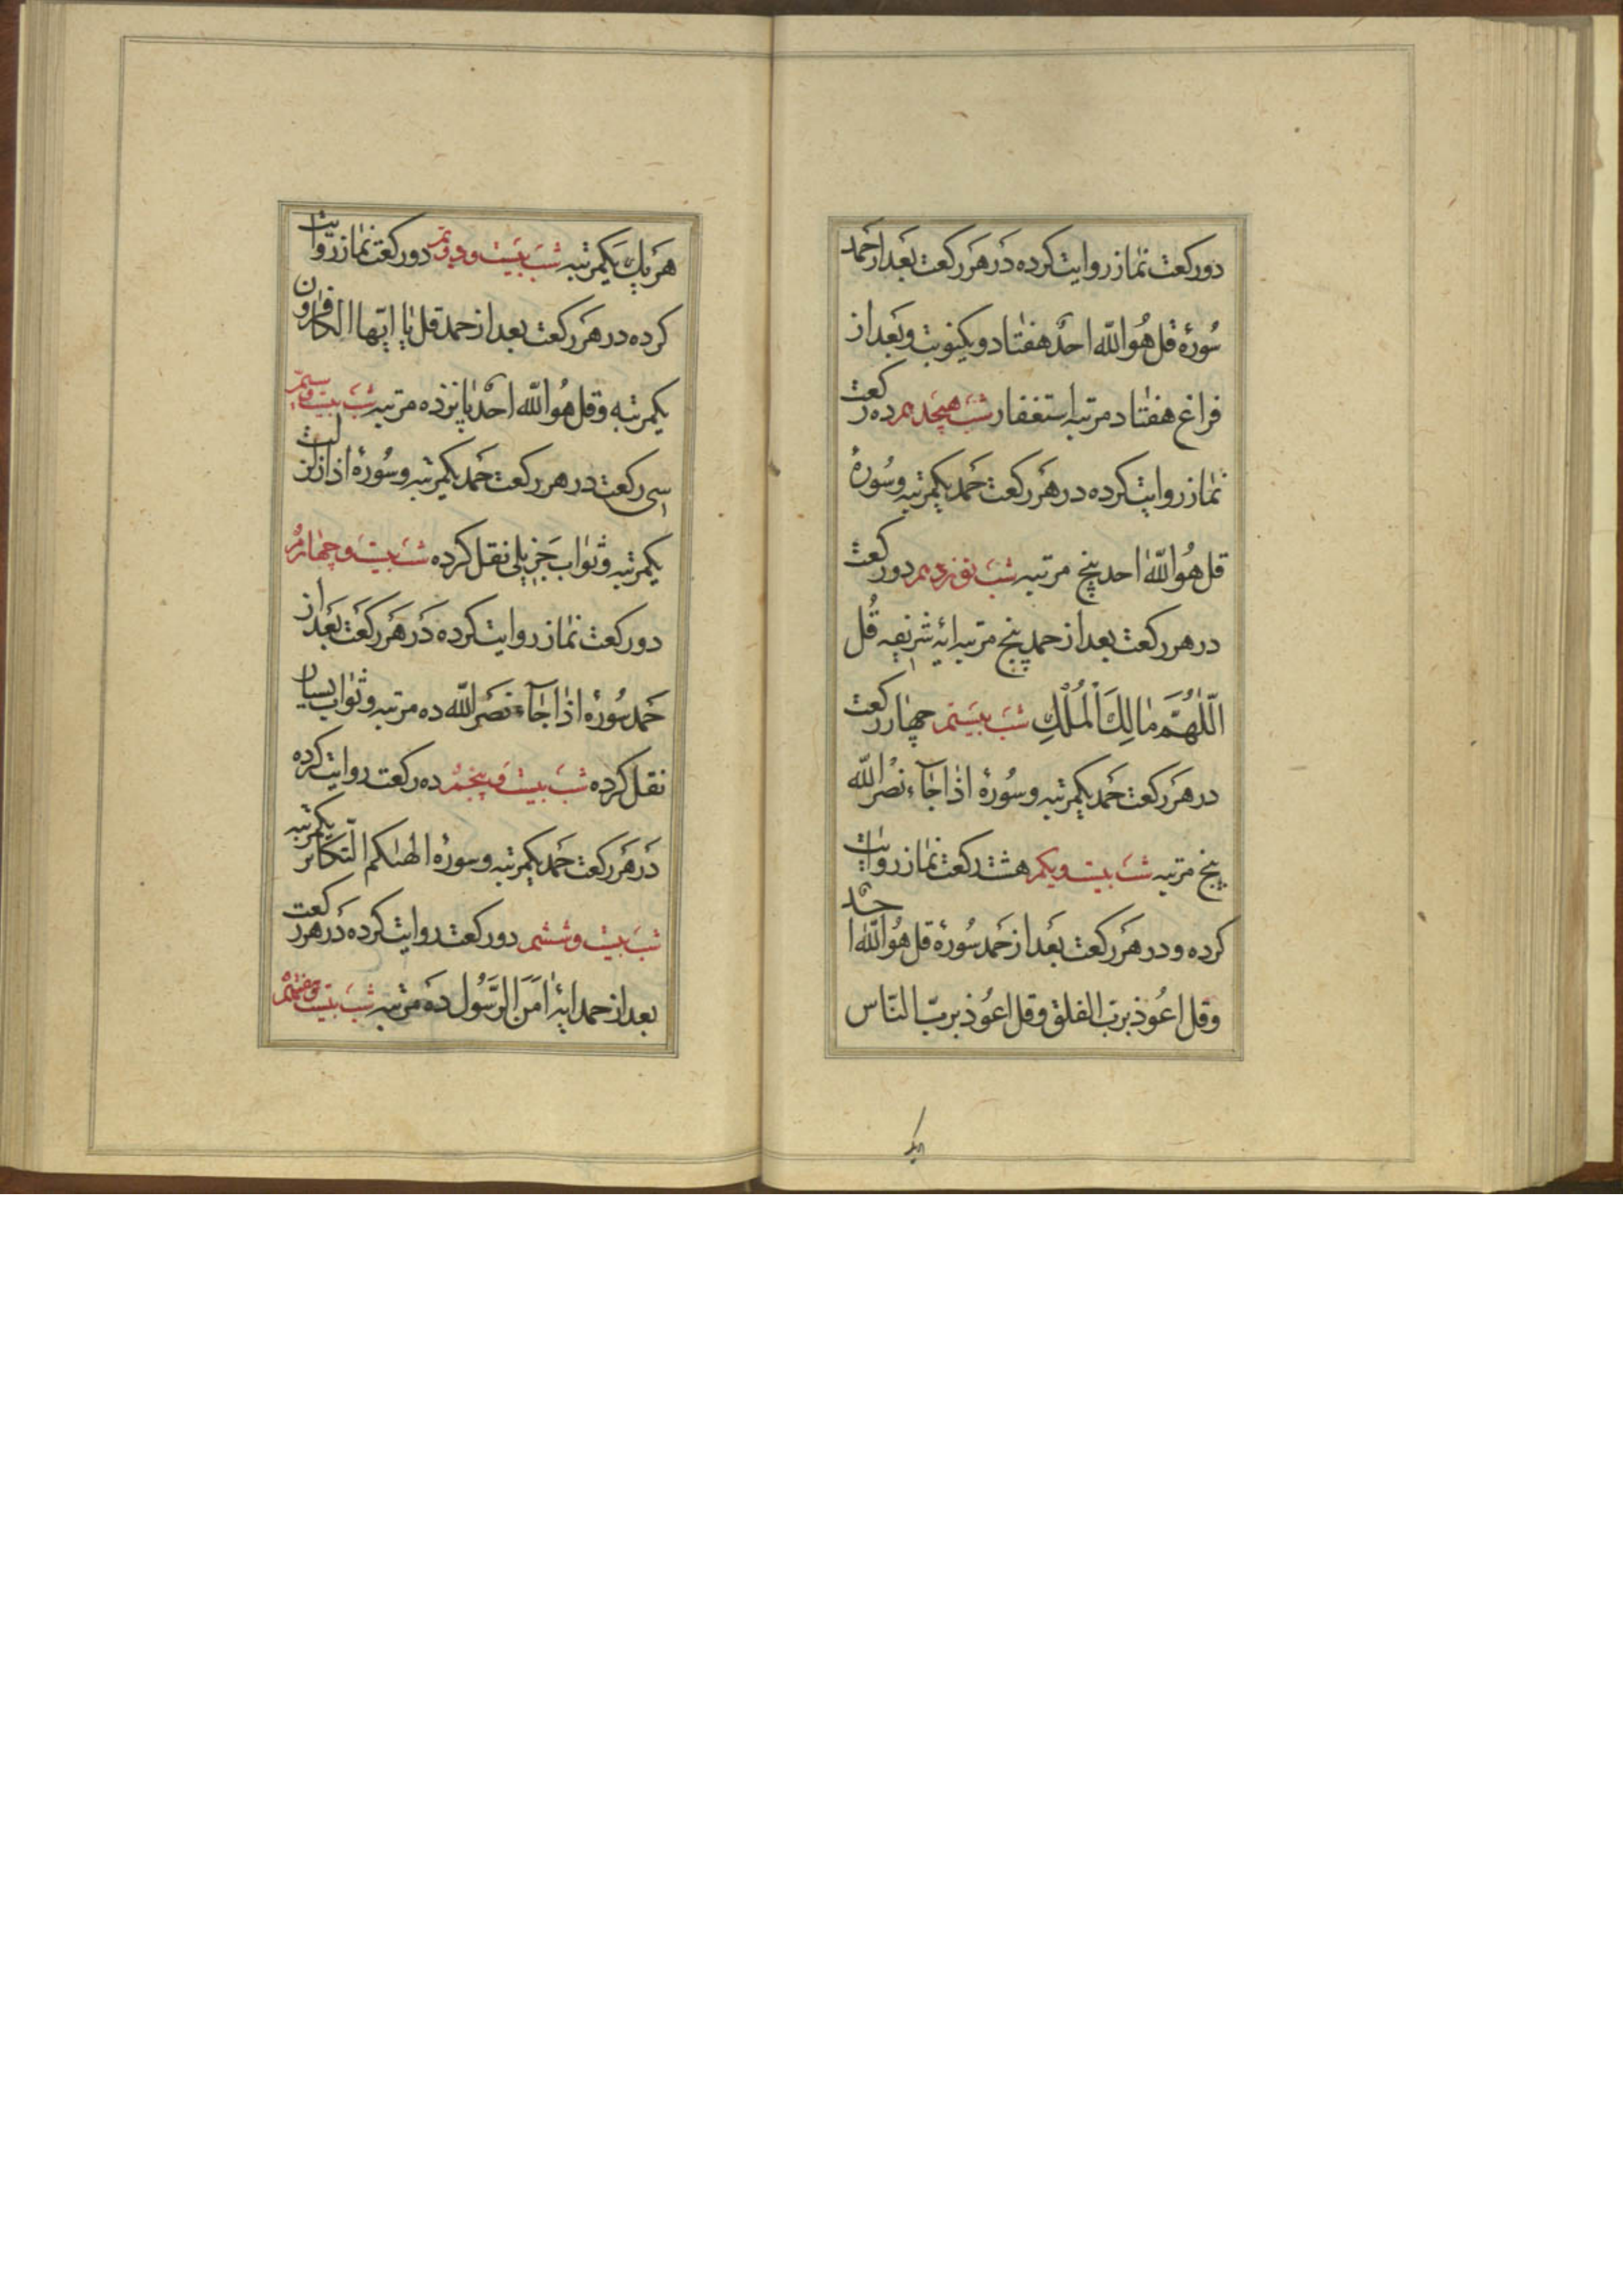 دوركعت نماز روايت كرده در هر ركعت بعد از حمد
سورۀ قل هو الله احد هفتاد و يك نوبت و بعد از
فراغ هفتاد مرتبه استغفار شب هيجدهم ده ركعت
نماز روايت كرده در هر ركعت حمد يكمرتبه و سورۀ
قل هو الله احد پنج مرتبه شب نوزدهم دو ركعت
در هر ركعت بعد از حمد پنج مرتبه ايۀ شريفه قُل
اللّٰهُمَّ مٰالِكَ الْمُلْكِ شب بيستم چهار ركعت
در هر ركعت حمد يكمرتبه و سورۀ اذا جآء نصر الله
پنج مرتبه شب بيست و يكم هشت ركعت نماز روايت
كرده و در هر ركعت بعد از حمد سورۀ قل هو الله احد
و قل اعوذ برب الفلق و قل اعوذ بربّ النّاس
هر يك يكمرتبه شب بيست و دويم دو ركعت نماز روايت
كرده در هر ركعت بعد از حمد قل يا ايّها الكافرون
يكمرتبه و قل هو الله احد پانزده مرتبه شب بيست و سيم
سى ركعت در هر ركعت حمد يكمرتبه و سورۀ اذا زلزلت
يكمرتبه و ثواب جزيلى نقل كرده شب بيست و چهارم
دو ركعت نماز روايت كرده در هر ركعت بعد از
حمد سورۀ اذا جآء نصر الله ده مرتبه و ثواب بسيار
نقل كرده شب بيست و پنجم ده ركعت روايت كرده
در هر ركعت حمد يكمرتبه و سورۀ الهٰيكم التّكاثر يكمرتبه
شب بيست و ششم دو ركعت روايت كرده در هر ركعت
بعد از حمد ايۀ امن الرّسول ده مرتبه شب بيست و هفتم